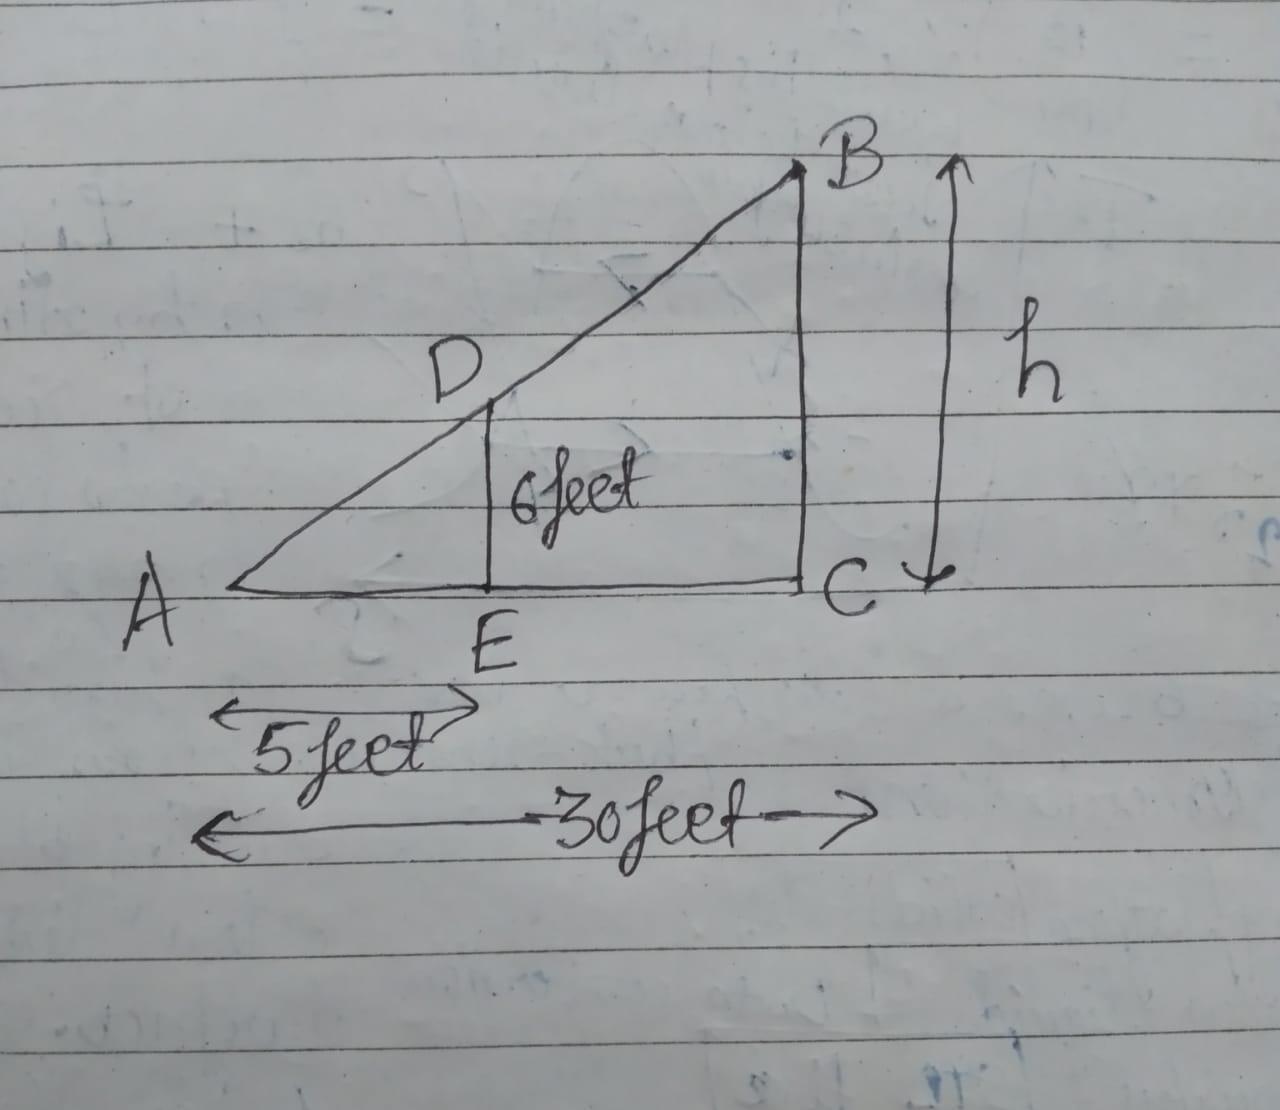 B
D
h
6feet
A
C
E
5feet
30feet